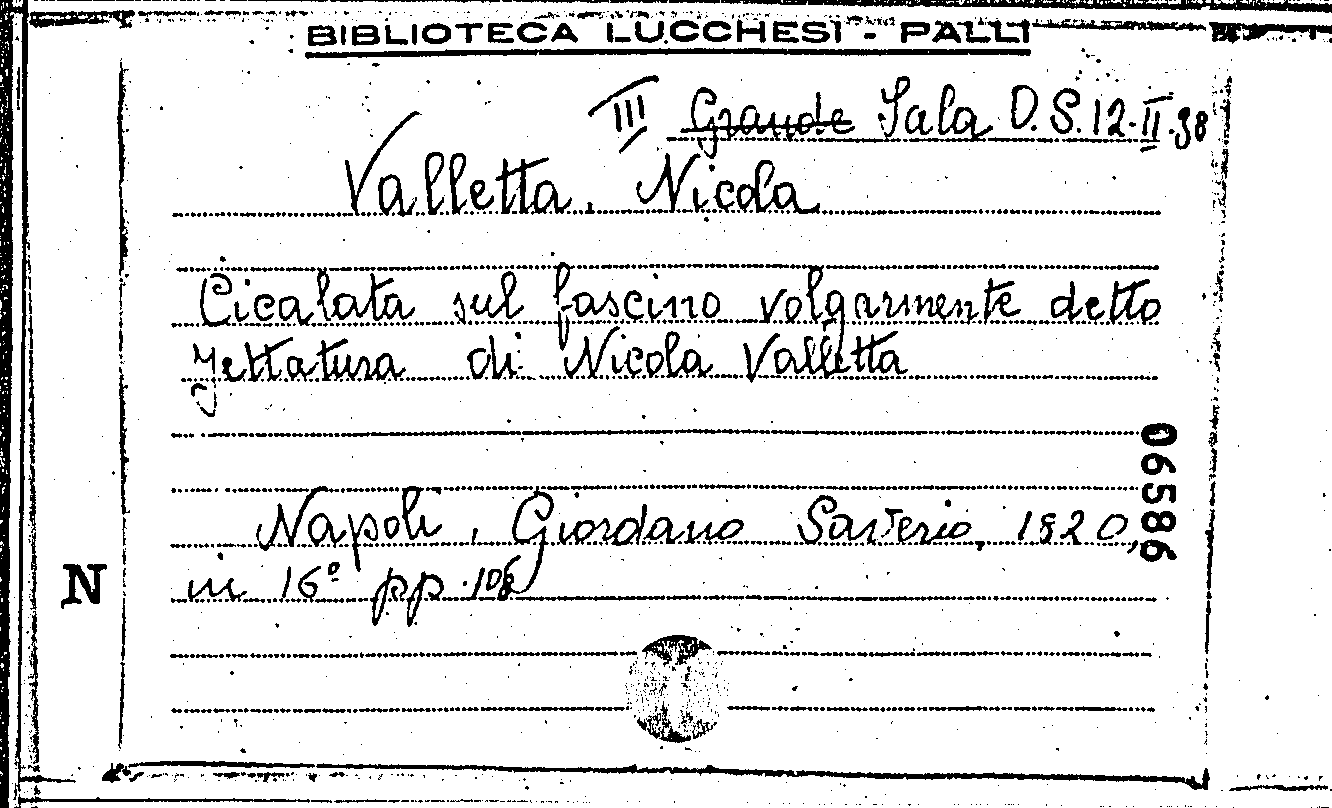 BIBLIOTECA LUCCHESI - PALLI
III Grande Sala D.S.12.II.38
Valletta, Nicola
Cicalata sul fascino volgarmente detto
jettatura di Nicola Valletta
Napoli, Giordano Saverio, 1820,
in 16º pp.
06586
N